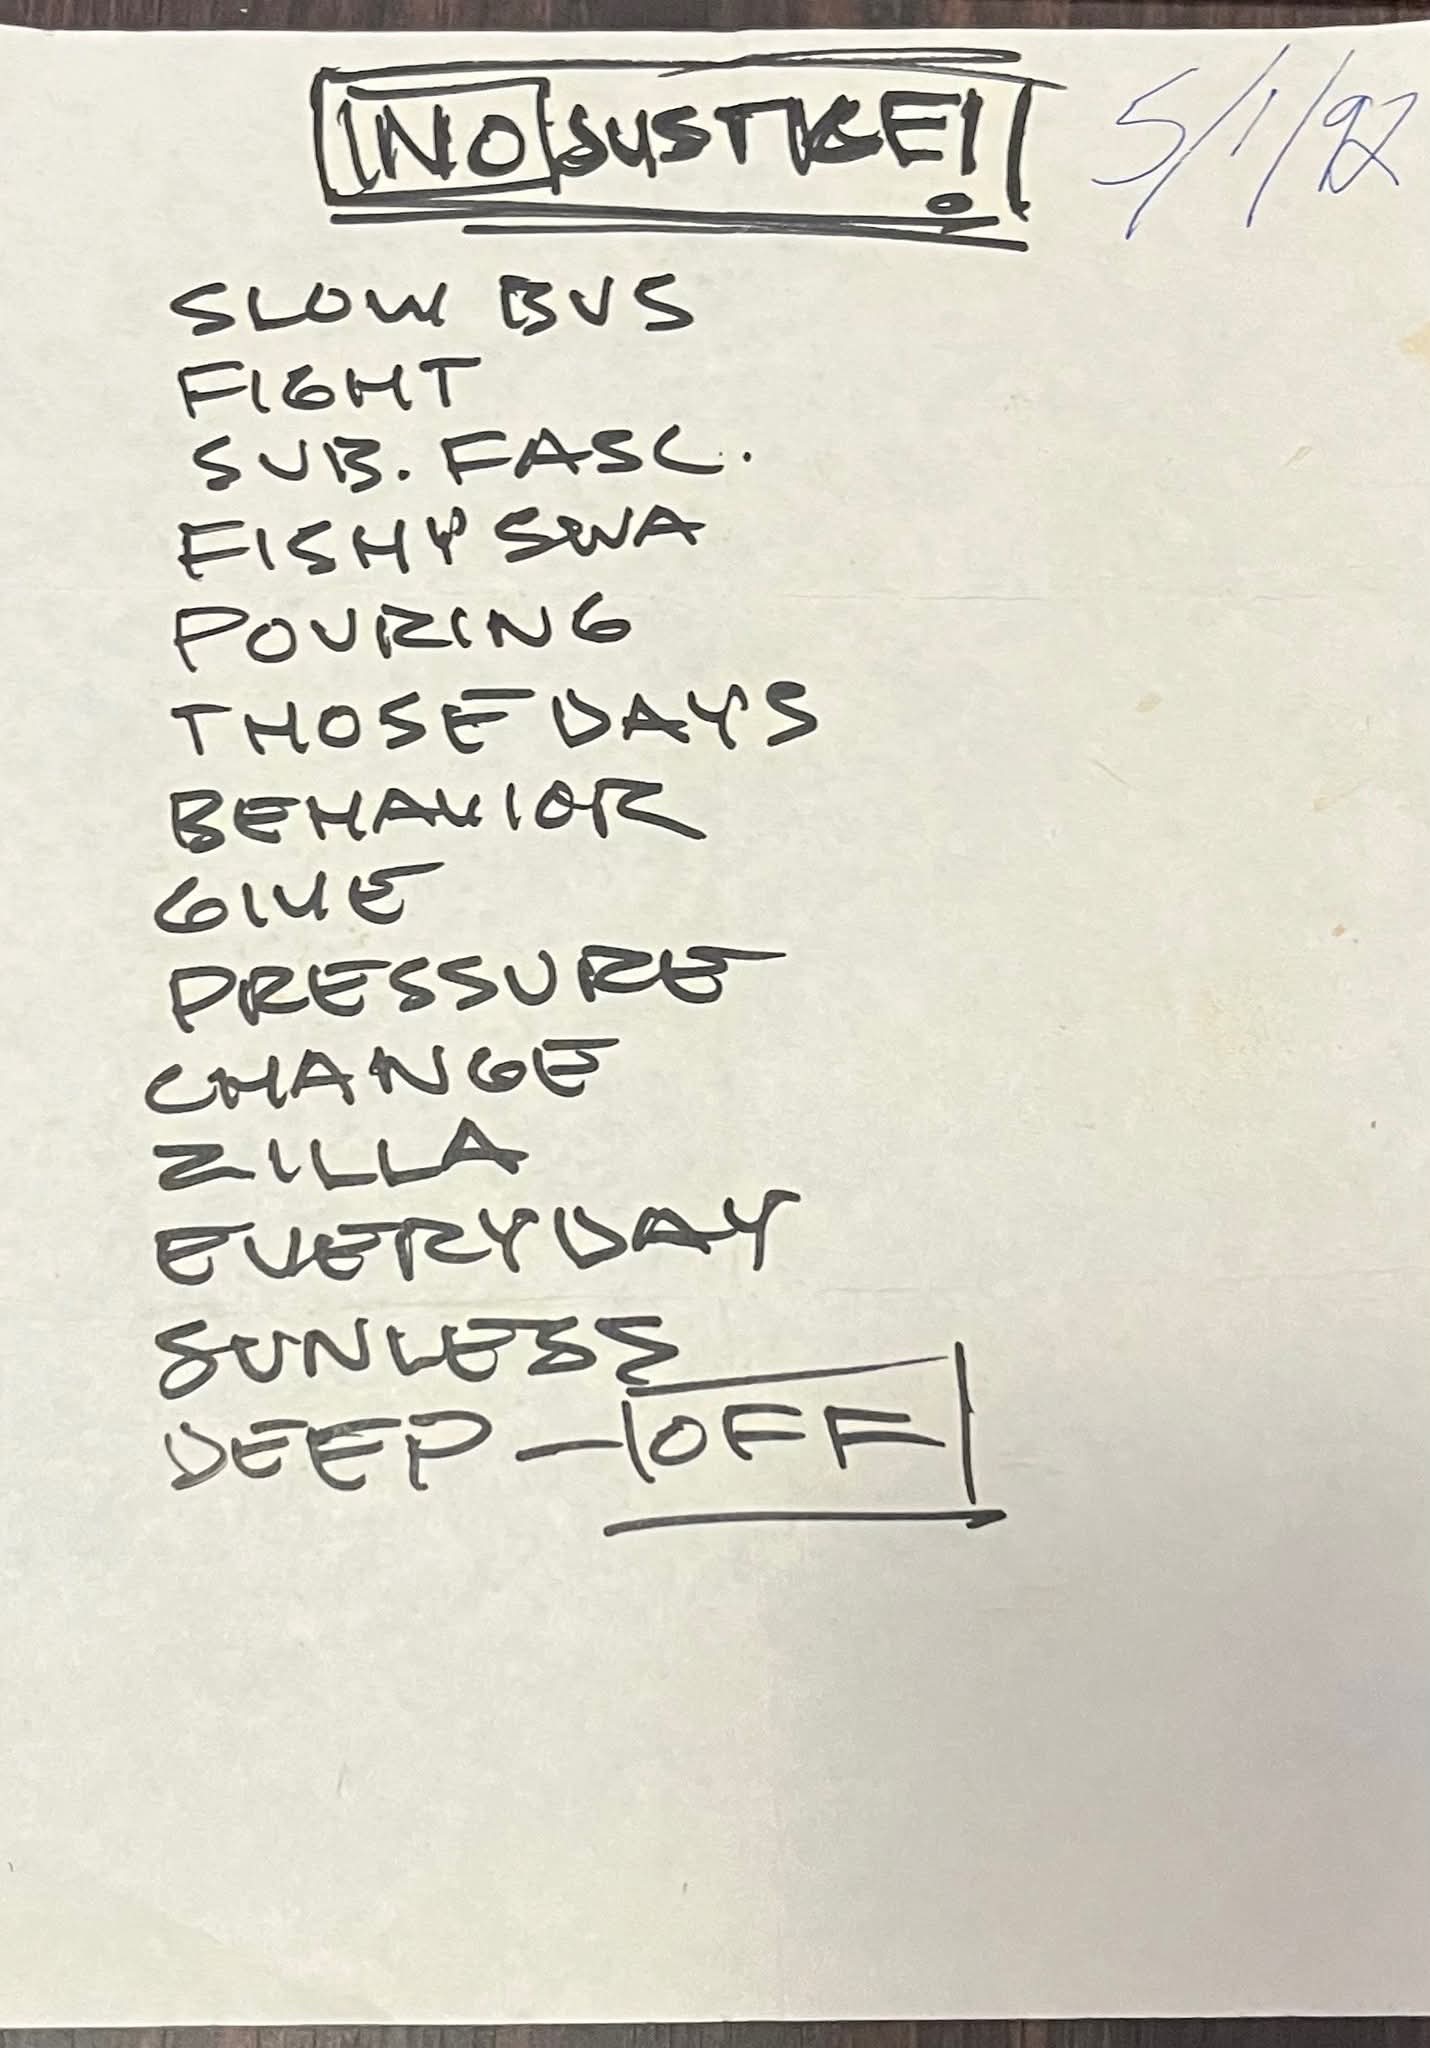 NO JUSTICE! 5/1/92
SLOW BUS
FIGHT
SUB. FASC.
FISHY SWA
POURING
THOSE DAYS
BEHAVIOR
GIVE
PRESSURE
CHANGE
ZILLA
EVERYDAY
SUNLESS
DEEP - OFF